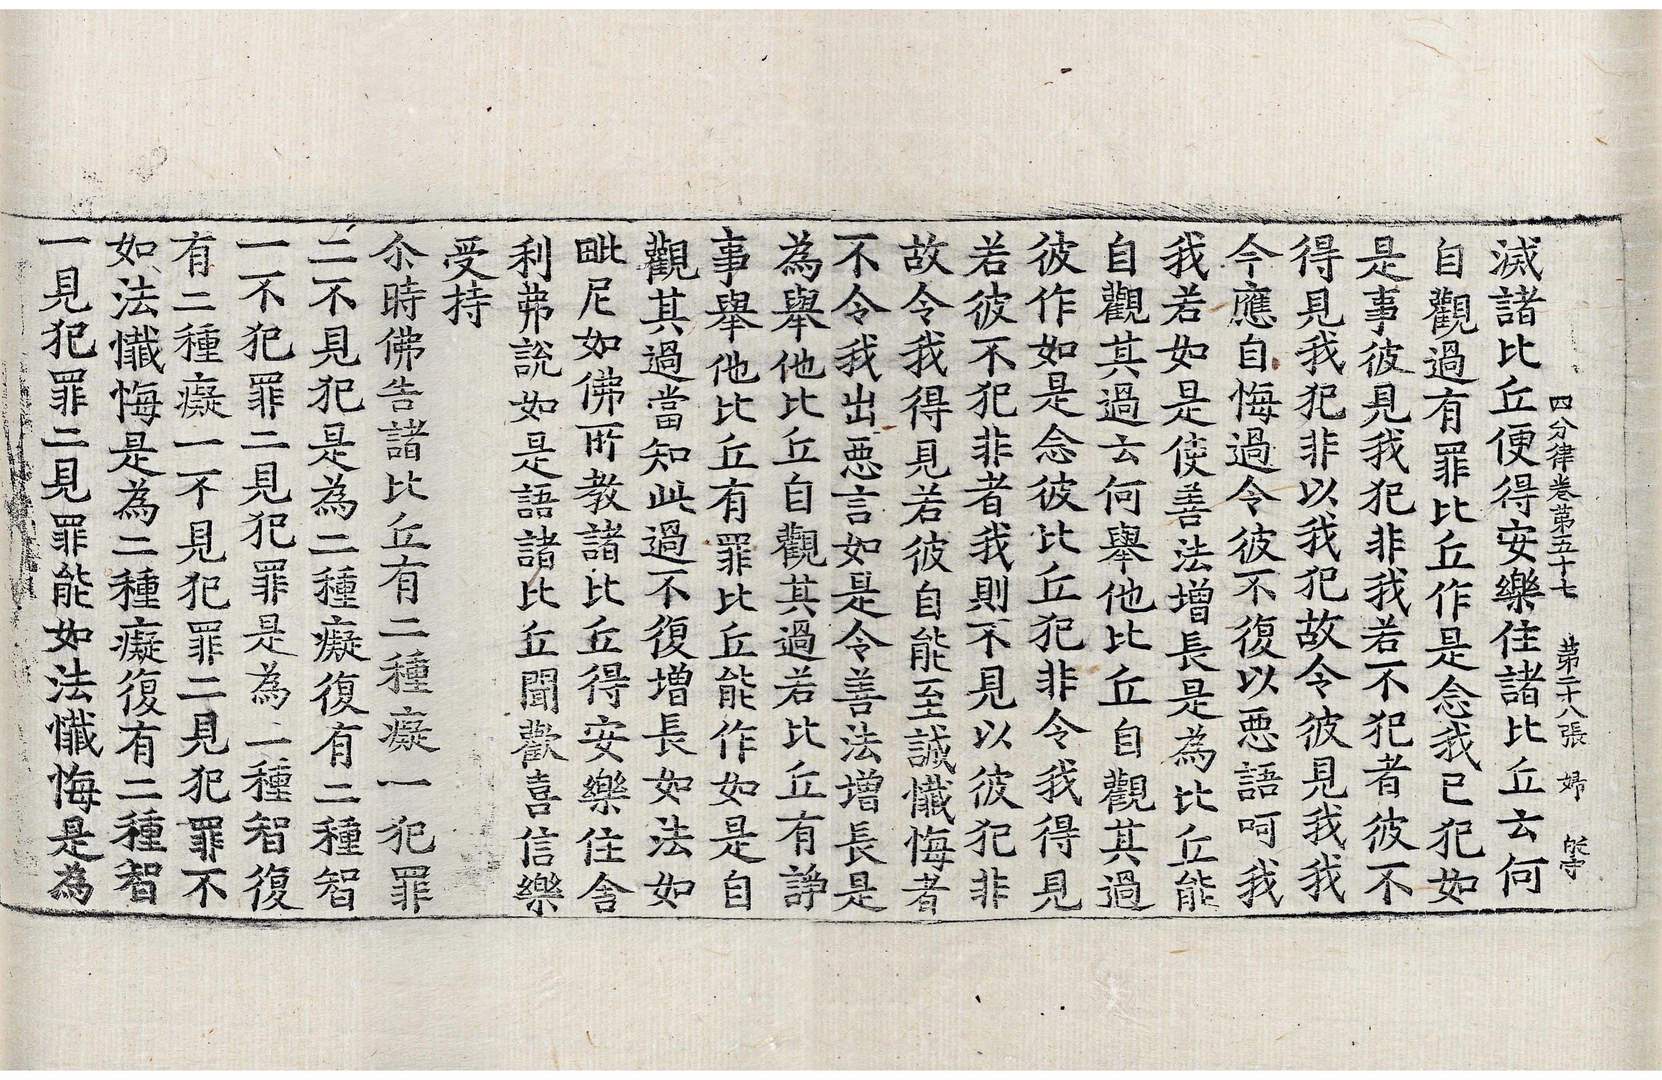 四分律卷第五十七　第二十八張　婦
滅諸比丘便得安樂住諸比丘云何
自觀過有罪比丘作是念我已犯如
是事彼見我犯非我若不犯者彼不
得見我犯非以我犯故令彼見我我
今應自悔過令彼不復以惡語呵我
我若如是使善法增長是為比丘能
自觀其過云何舉他比丘自觀其過
彼作如是念彼比丘犯非令我得見
若彼不犯非者我則不見以彼犯非
故令我得見若彼自能至誠懺悔者
不令我出惡言如是令善法增長是
為舉他比丘自觀其過若比丘有諍
事舉他比丘有罪比丘能作如是自
觀其過當知此過不復增長如法如
毗尼如佛所教諸比丘得安樂住舍
利弗說如是語諸比丘聞歡喜信樂
受持
尒時佛告諸比丘有二種癡一犯罪
二不見犯是為二種癡復有二種智
一不犯罪二見犯罪是為二種智復
有二種癡一不見犯罪二見犯罪不
如法懺悔是為二種癡復有二種智
一見犯罪二見罪能如法懺悔是為